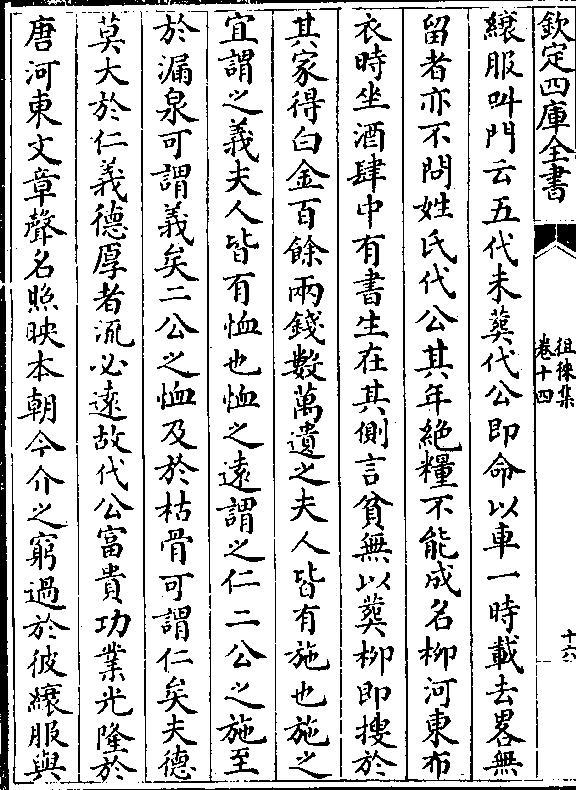 欽定四庫全書
徂徠集
卷十四
十六
縗服叫門云五代未葬代公即命以車一時載去畧無
留者亦不問姓氏代公其年絶糧不能成名柳河東布
衣時坐酒肆中有書生在其側言貧無以葬柳即搜於
其家得白金百餘兩錢數萬遺之夫人皆有施也施之
宜謂之義夫人皆有恤也恤之遠謂之仁二公之施至
於漏泉可謂義矣二公之恤及於枯骨可謂仁矣夫德
莫大於仁義德厚者流必遠故代公富貴功業光隆於
唐河東文章聲名照映本朝今介之窮過於彼縗服與